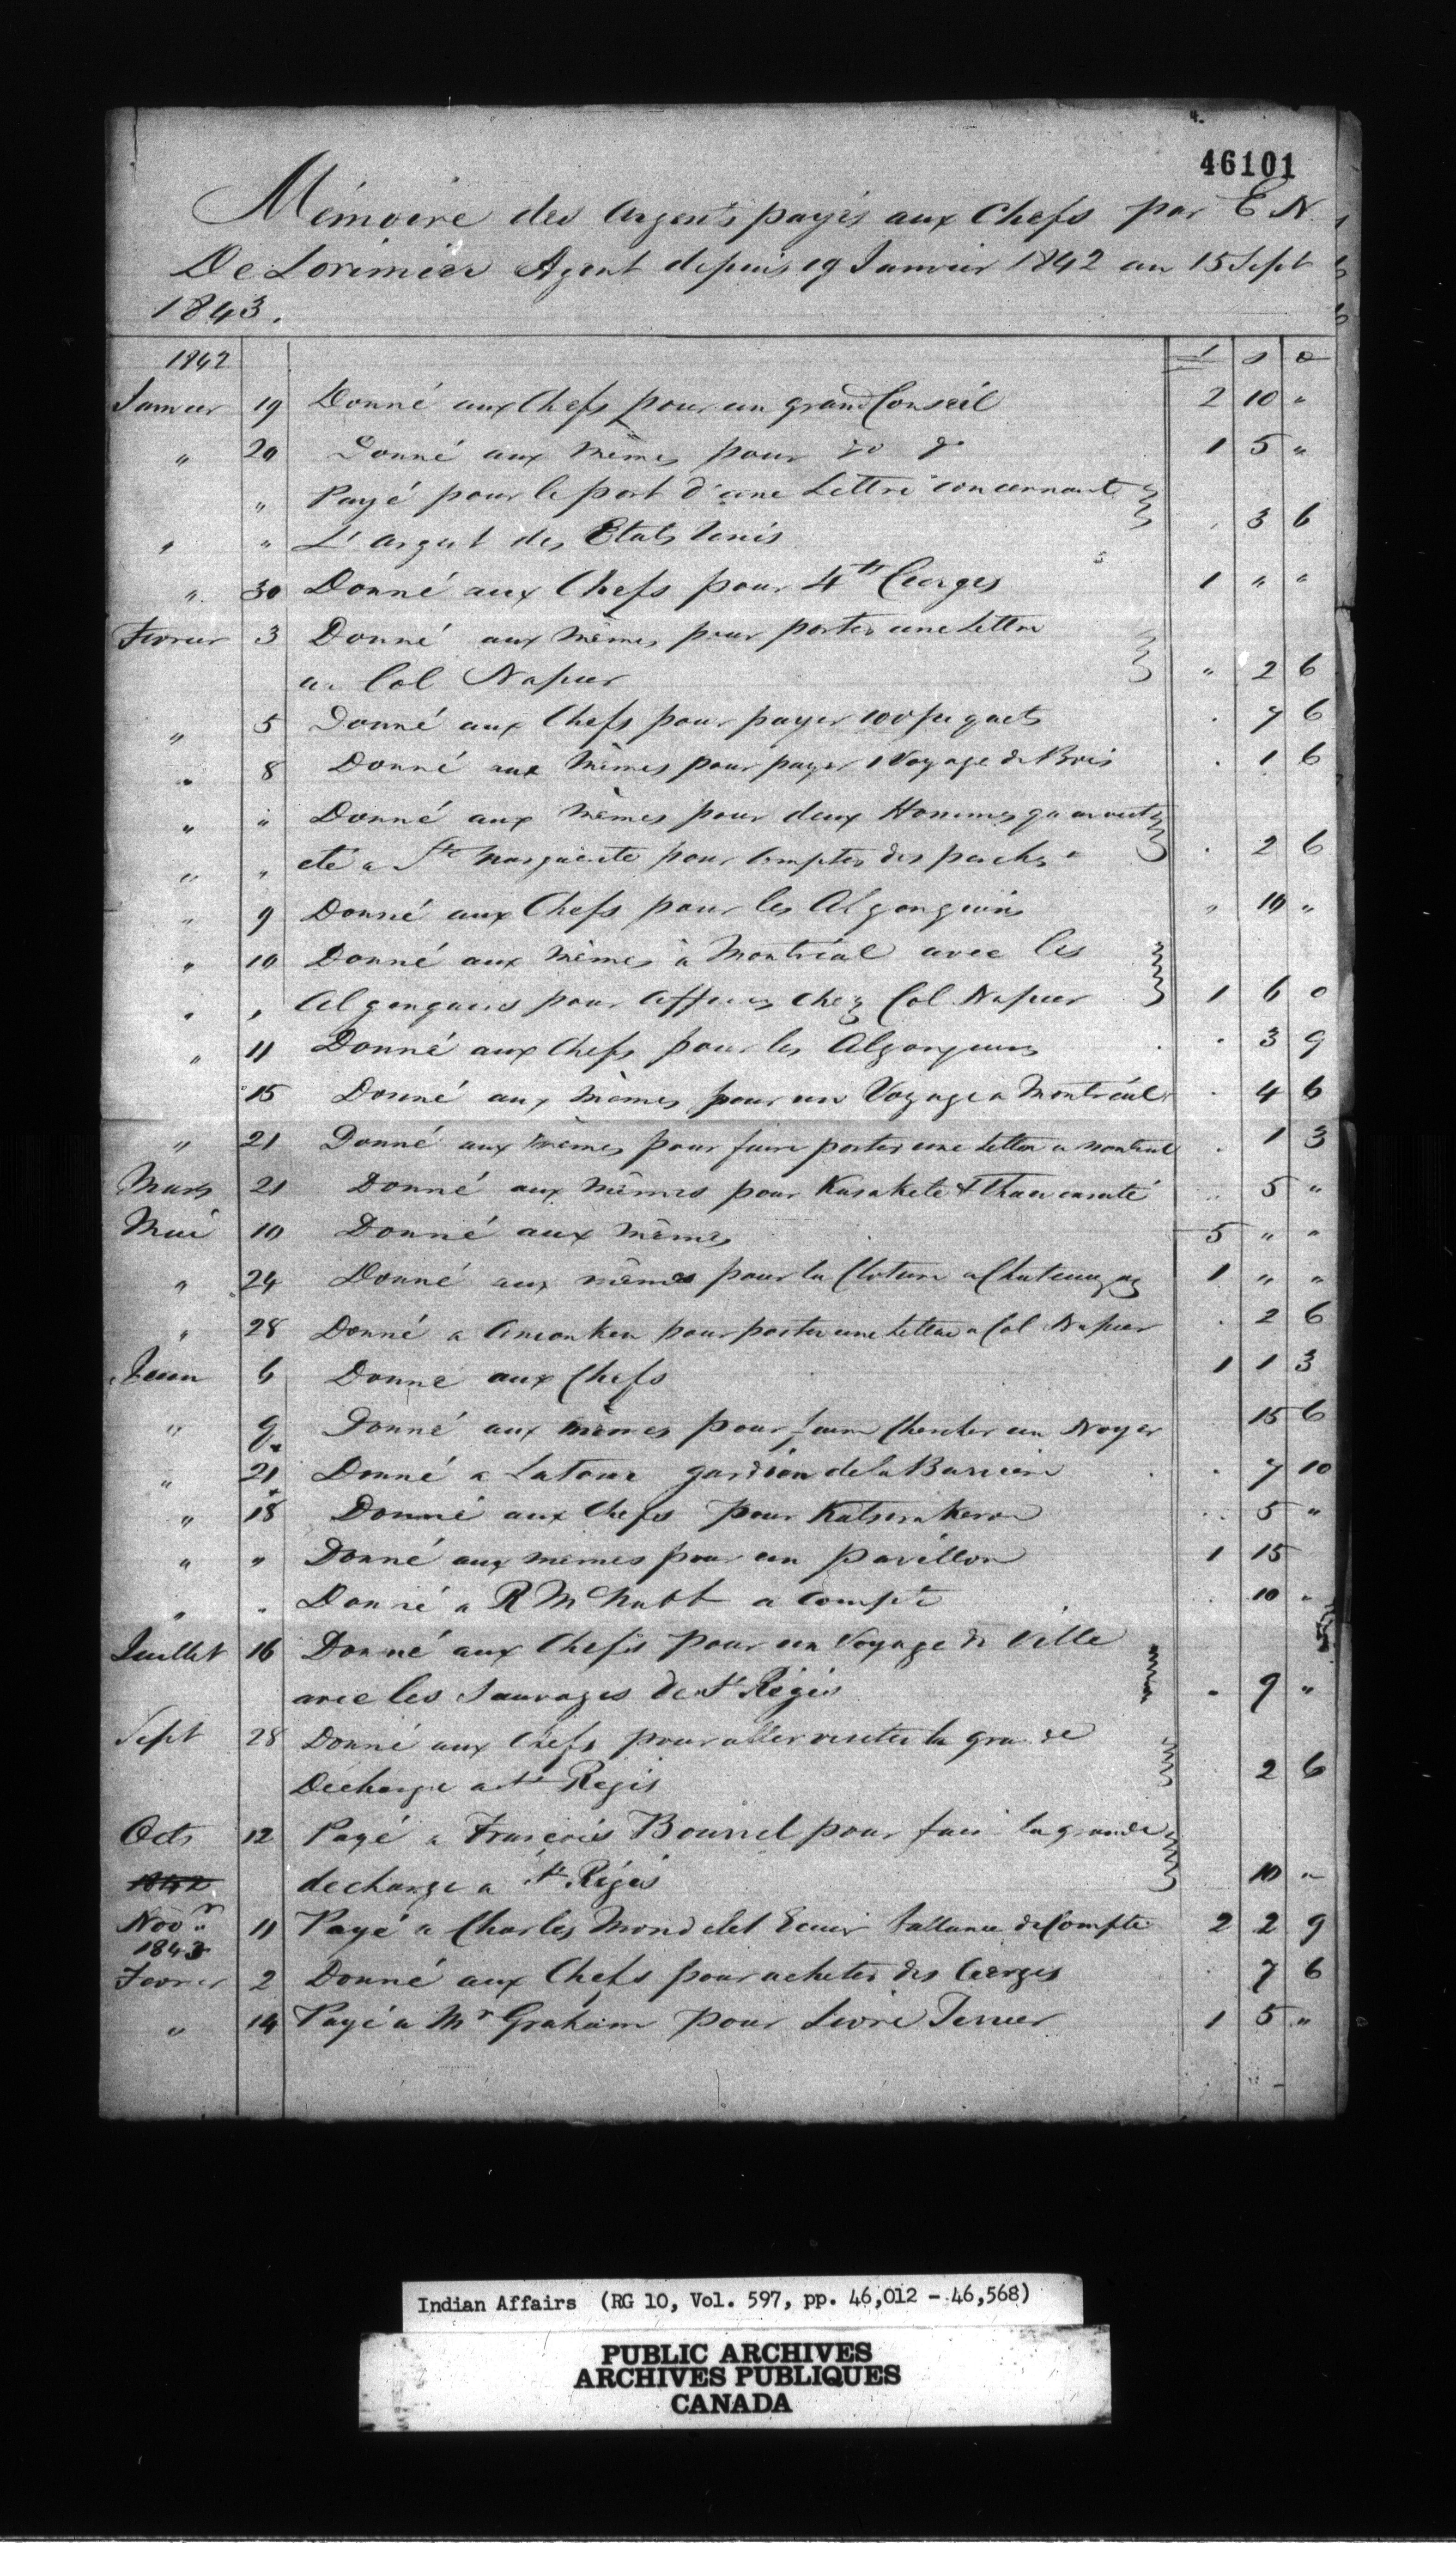 46101
Mémoire des Argents payés aux Chefs par E N
De Lorimier Agent depuis 19 Janvier 1842 au 15 Sept
1843.
1842 £ s d
Janvier 19 Donné aux Chefs pour un grand Conseil 2 10 "
" 20 Donné aux mêmes pour do do 1 5 "
" Payé pour le port d'une Lettre concernant
" " L'argent des Etats Unis . 3 6
" 30 Donné aux Chefs pour 4 Cierges 1 " "
Fevrier 3 Donné aux mêmes pour porter une Lettre
a Col Napier " 2 6
" 5 Donné aux Chefs pour payer 100 piquets . 7 6
" 8 Donné aux mêmes pour payer 1 Voyage de Bois . 1 6
" " Donné aux mêmes pour deux Hommes qui avait
" " eté a Ste Marguerite pour compter des perches . 2 6
" 9 Donné aux Chefs pour les Algonquins " 10 "
" 10 Donné aux mêmes à Montréal avec les
" " Algonquins pour affaires chez Col Napier 1 6 0
" 11 Donné aux Chefs pour les Algonquins . 3 9
15 Donné aux mêmes pour un Voyage a Montréal . 4 6
" 21 Donné aux mêmes pour faire porter une Lettre a Montreal . 1 3
Mars 21 Donné aux mêmes pour Karakete & .. 5 "
Mai 10 Donné aux mêmes 5 " "
" 24 Donné aux mêmes pour la Cloture a Chateaugay 1 " "
" 28 Donné a pour porter une Lettre a Col Napier . 2 6
Juin 6 Donné aux Chefs 1 1 3
" 9 Donné aux mêmes pour faire chercher un Noyer 15 6
" 21 Donné a Latour gardien de la Barriere . 7 10
" 18 Donné aux Chefs pour .. 5 "
" " Donné aux mêmes pour un pavillon 1 15
" " Donné a R McNabb a compte . 10 "
Juillet 16 Donné aux Chefs pour un Voyage de Ville
avec les Sauvages de St Régis . 9 "
Sept 28 Donné aux Chefs pour aller visiter la grande
Décharge a St Regis 2 6
Octr 12 Payé a François Bourret pour faire la grande
1842 decharge a St Régis 10 "
Novr " 11 Payé a Charles Mondelet Ecuier ballance de Compte 2 2 9
1843
Fevrier 2 Donné aux Chefs pour acheter des Cierges . 7 6
" 14 Payé a Mr Graham pour Livre Terrier 1 5 "
Indian Affairs (RG 10, Vol. 597, pp. 46,012 - 46,568)
PUBLIC ARCHIVES
ARCHIVES PUBLIQUES
CANADA